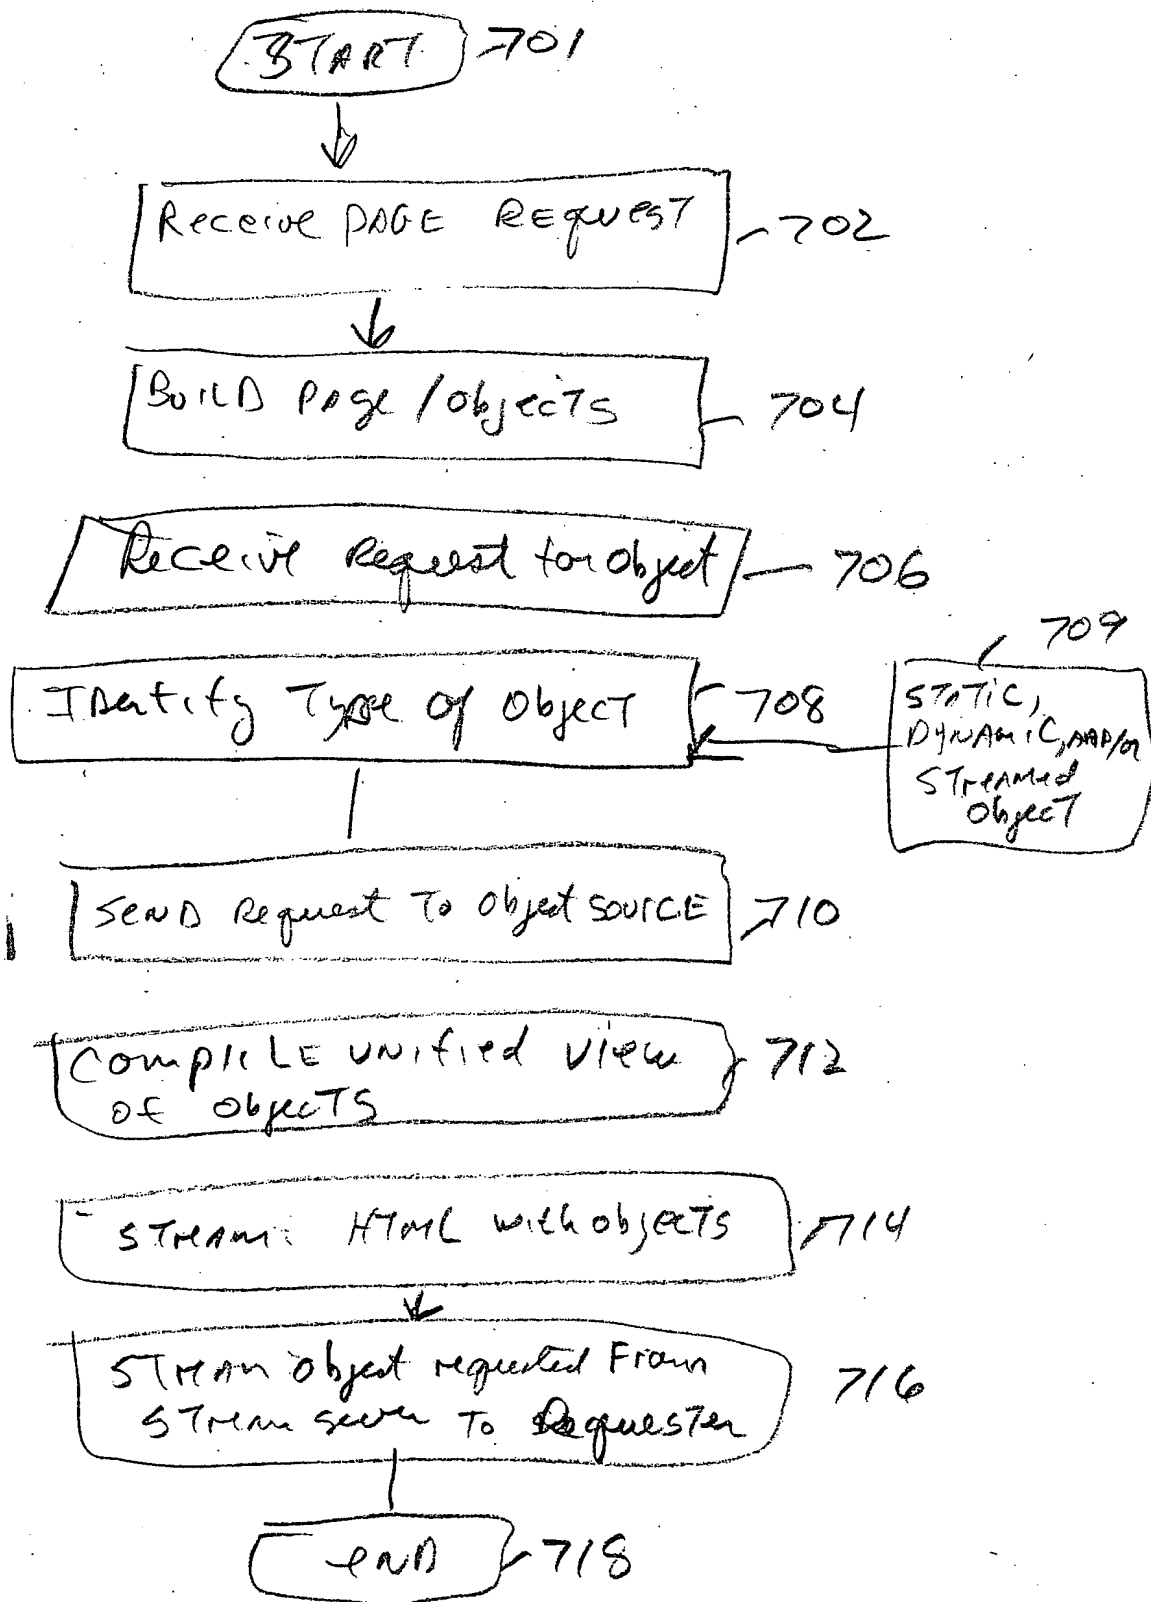 START 701
Receive PAGE REQUEST 702
BUILD Page / Objects 704
Receive Request for Object 706
709
IDentify Type of Object 708
STATIC,
DYNAMIC, AND/or
STreamed
Object
SEND Request To Object SOURCE 710
COMPILE UNified View 712
of ObjecTS
STREAM: HTML with objects 714
STREAM Object requested From
STREAM server To Requester 716
END 718